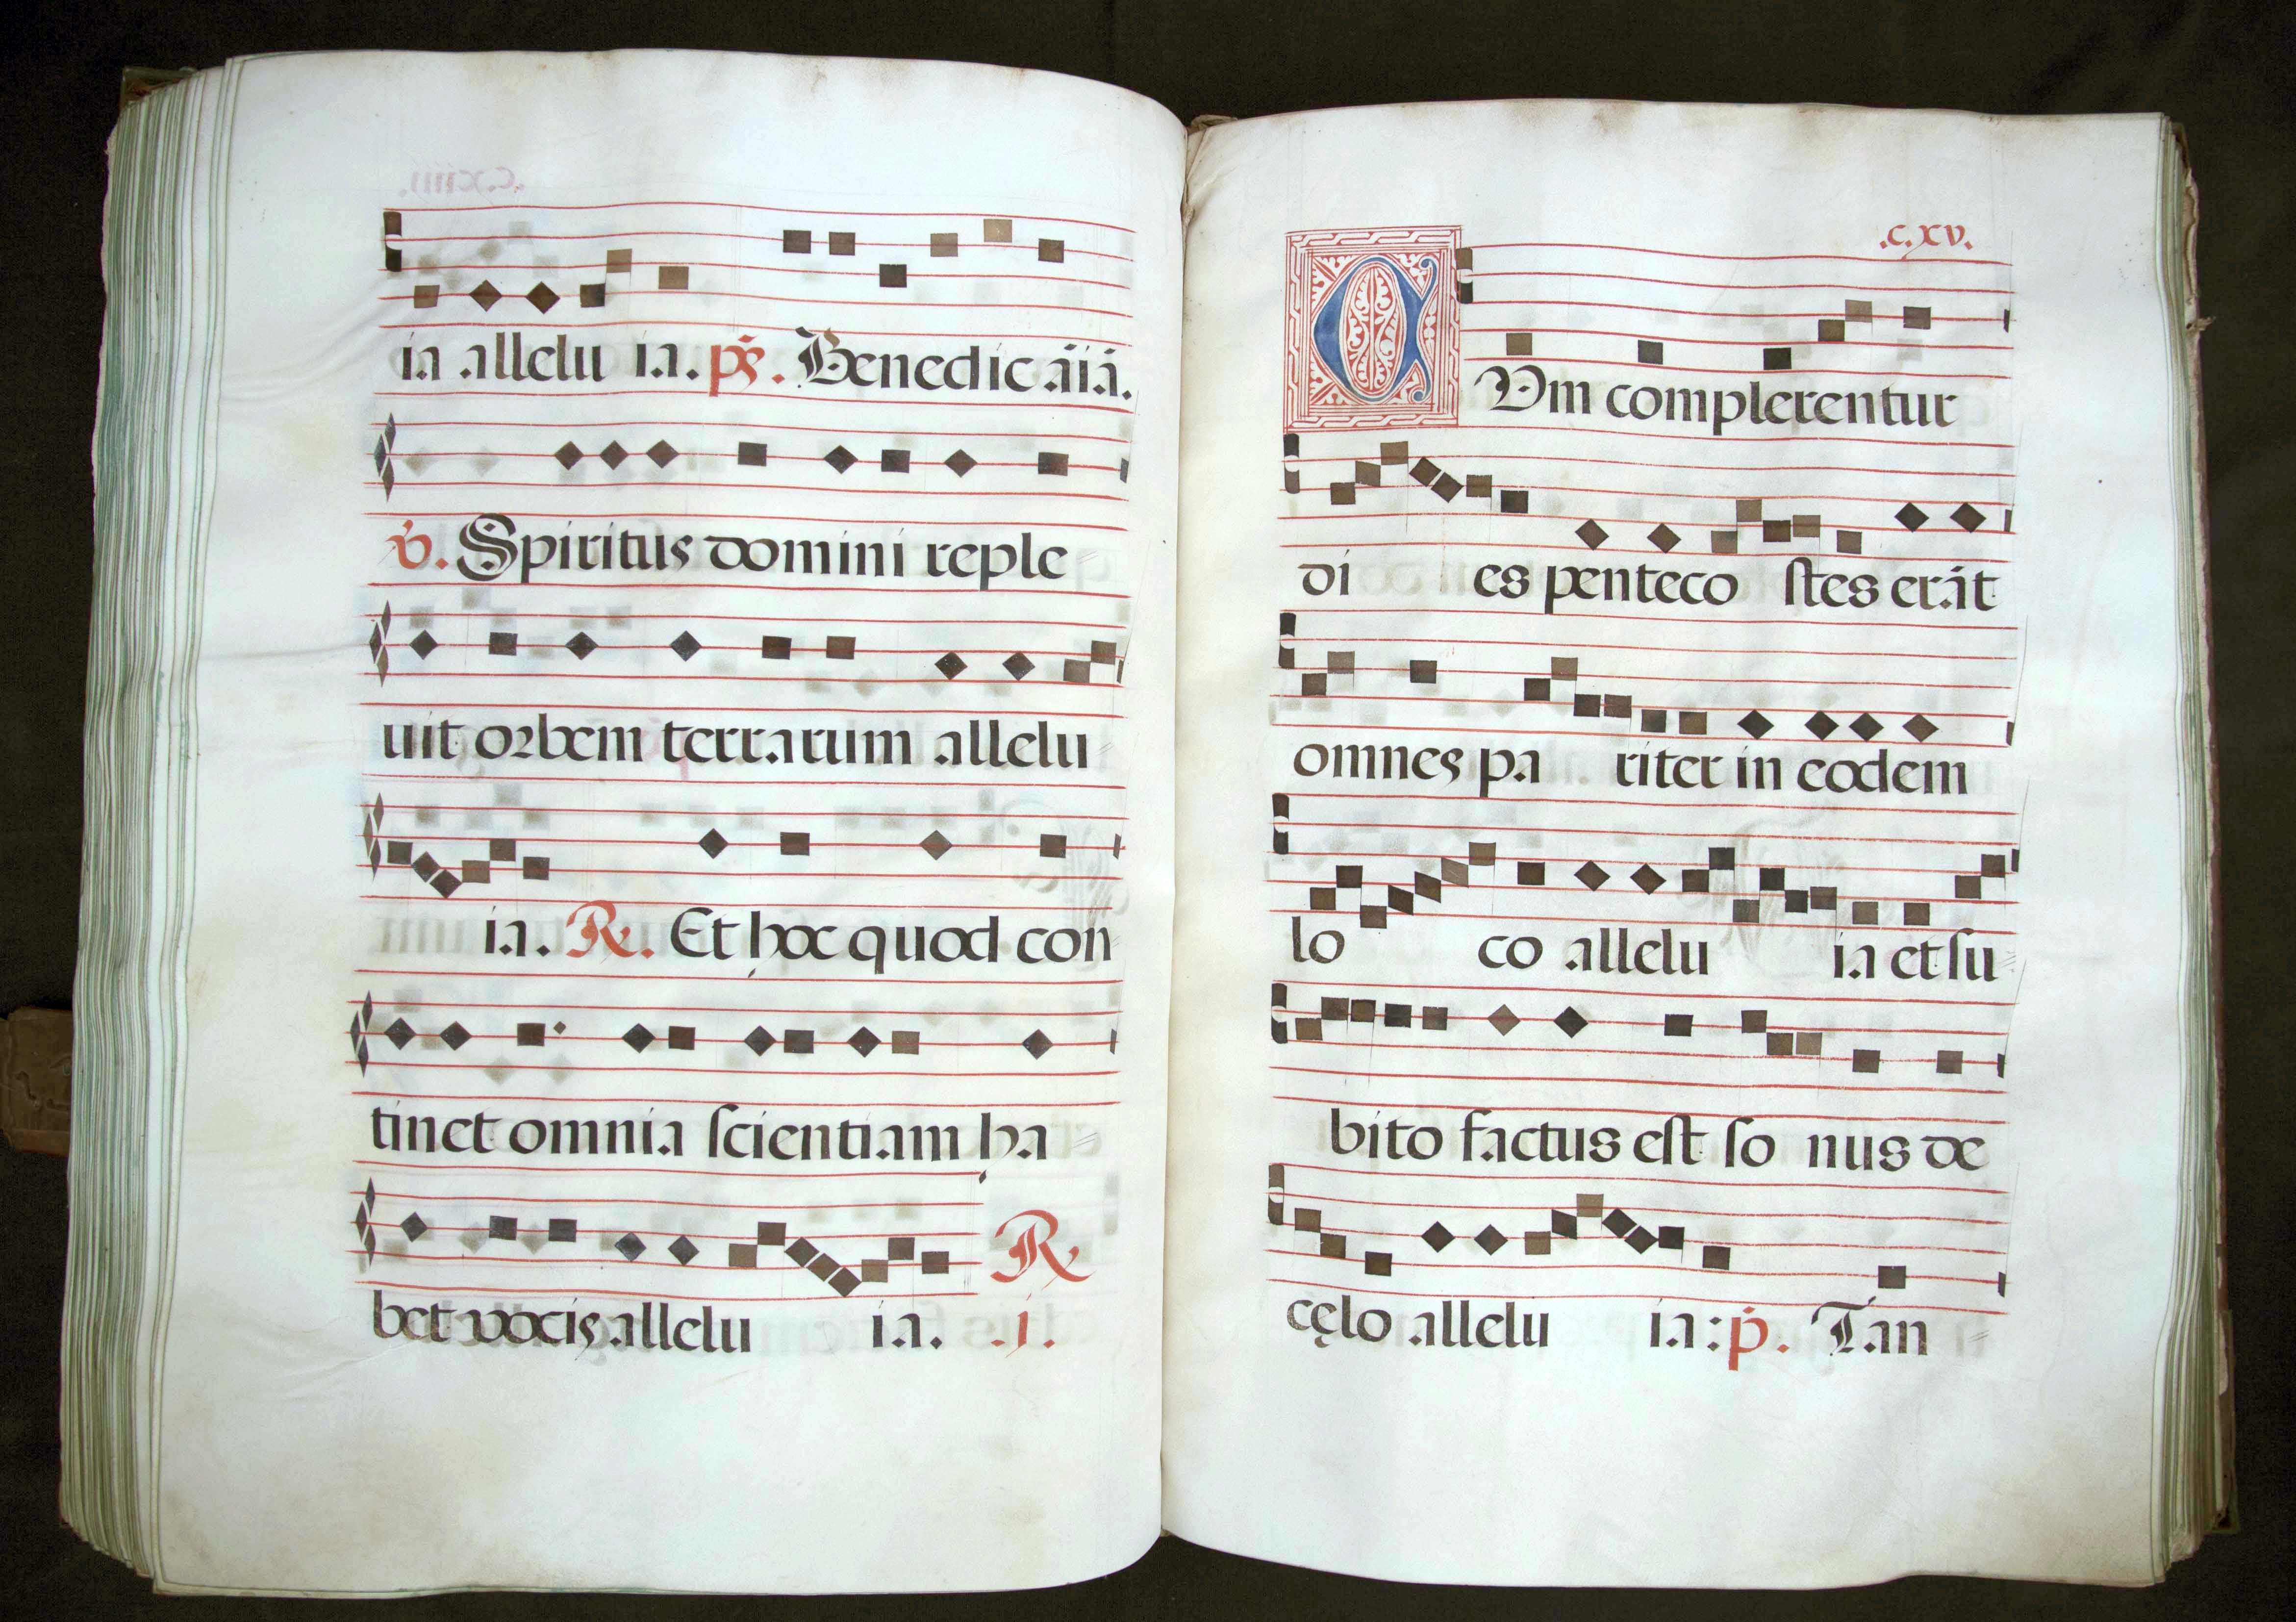 ia allelu ia. ps̄. Benedic āiā.
v. Spiritus domini reple
uit orbem terrarum allelu
ia. R. Et hoc quod con
tinet omnia scientiam ha
bet vocis allelu ia. R .i.
.c.xv.
CVm complerentur
di es penteco stes erāt
omnes pa riter in eodem
lo co allelu ia et su
bito factus est so nus de
cęlo allelu ia: p. Tan